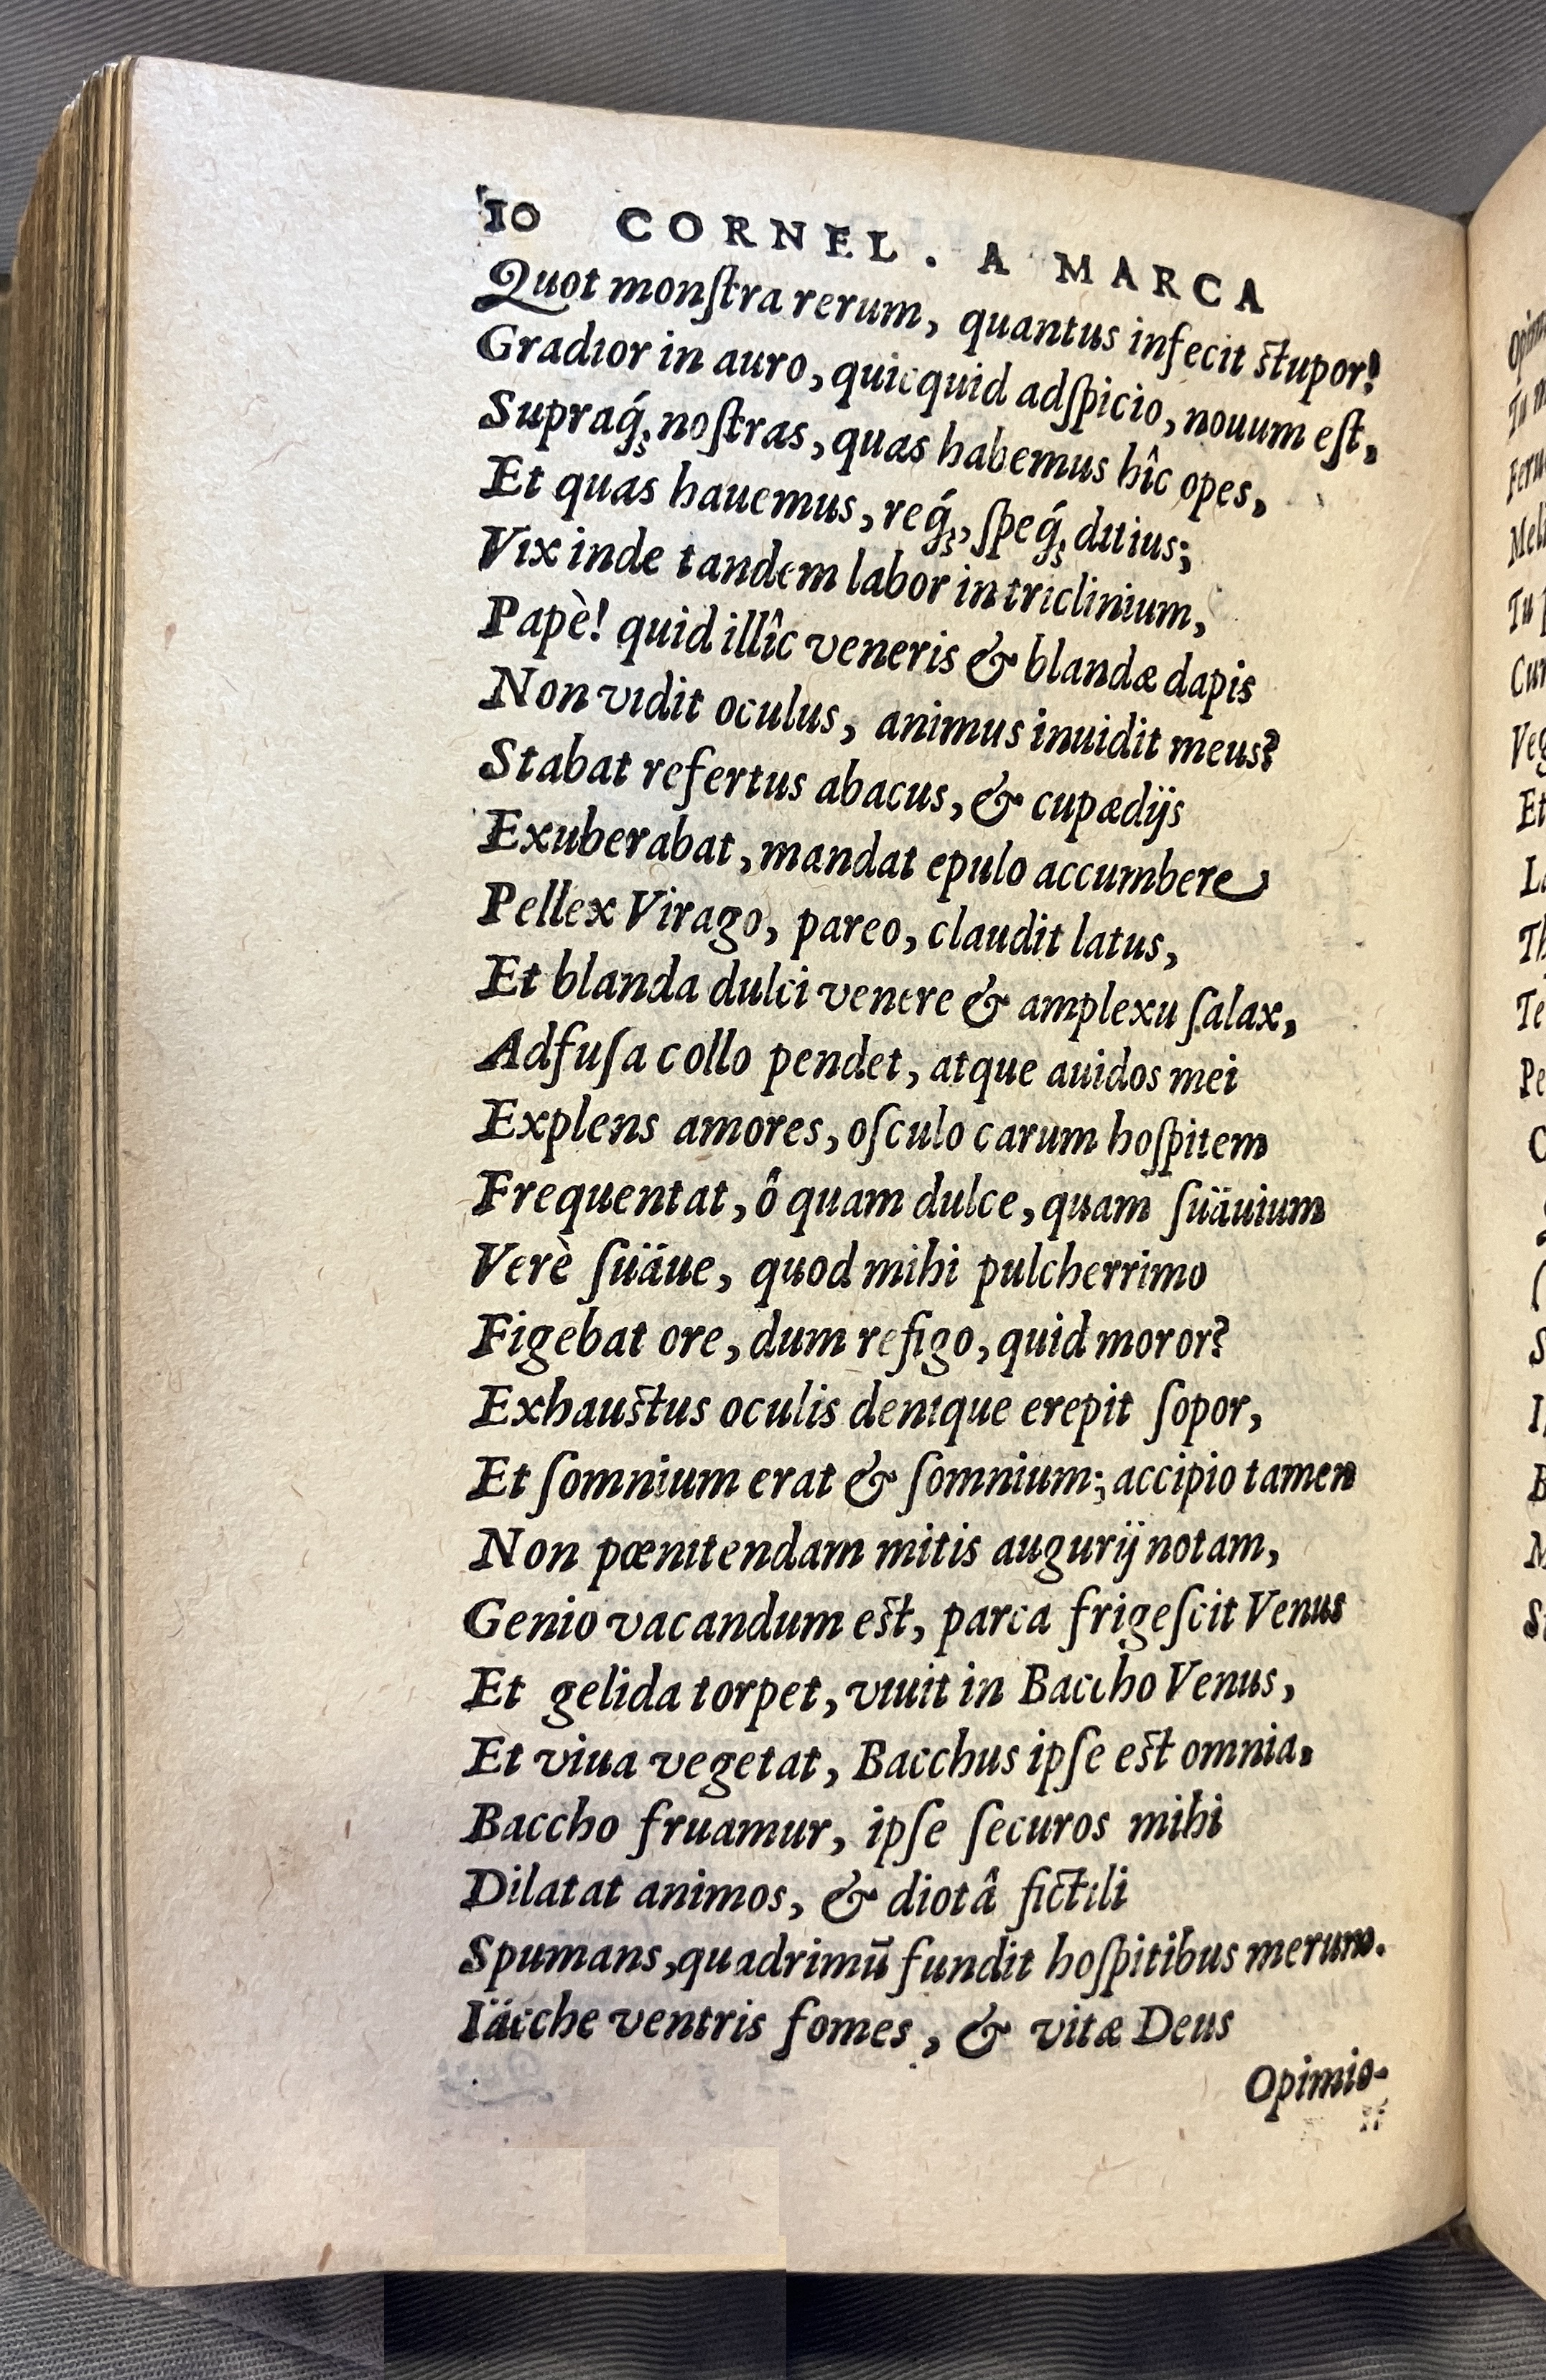 10 CORNEL. A MARCA
Quot monſtra rerum, quantus infecit ſtupor!
Gradior in auro, quicquid adſpicio, nouum eſt,
Supraq́ꝫ noſtras, quas habemus hîc opes,
Et quas hauemus, req́ꝫ, ſpeq́ꝫ ditius;
Vix inde tandem labor in triclinium,
Papè! quid illîc veneris & blandæ dapis
Non vidit oculus, animus inuidit meus?
Stabat refertus abacus, & cupædijs
Exuberabat, mandat epulo accumbere
Pellex Virago, pareo, claudit latus,
Et blanda dulci venere & amplexu ſalax,
Adfuſa collo pendet, atque auidos mei
Explens amores, oſculo carum hoſpitem
Frequentat, ô quam dulce, quam ſuäuium
Verè ſuäue, quod mihi pulcherrimo
Figebat ore, dum refigo, quid moror?
Exhauſtus oculis denique erepit ſopor,
Et ſomnium erat & ſomnium; accipio tamen
Non pœnitendam mitis augurij notam,
Genio vacandum eſt, parca frigeſcit Venus
Et gelida torpet, viuit in Baccho Venus,
Et viua vegetat, Bacchus ipſe eſt omnia.
Baccho fruamur, ipſe ſecuros mihi
Dilatat animos, & diotâ fictili
Spumans, quadrimū fundit hoſpitibus merum.
Iäcche ventris fomes, & vitæ Deus
Opimio-